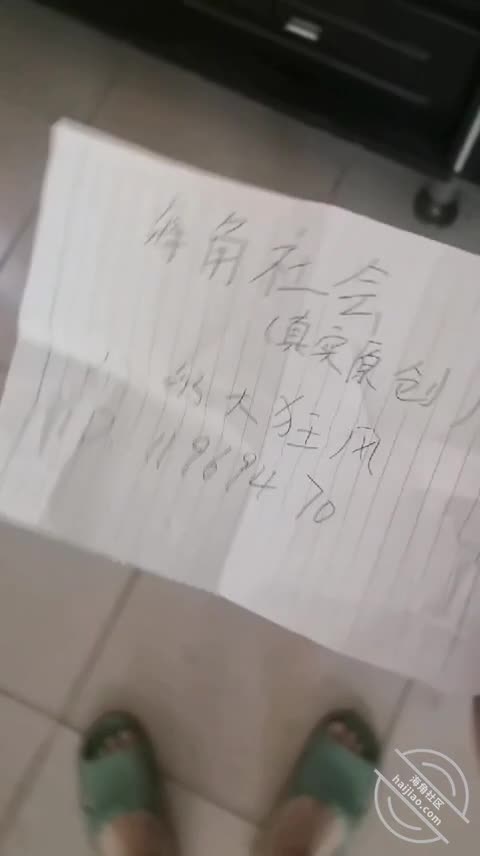 海角社会
(真实原创)
大狂风
11969470
海角社区
haijiao.com